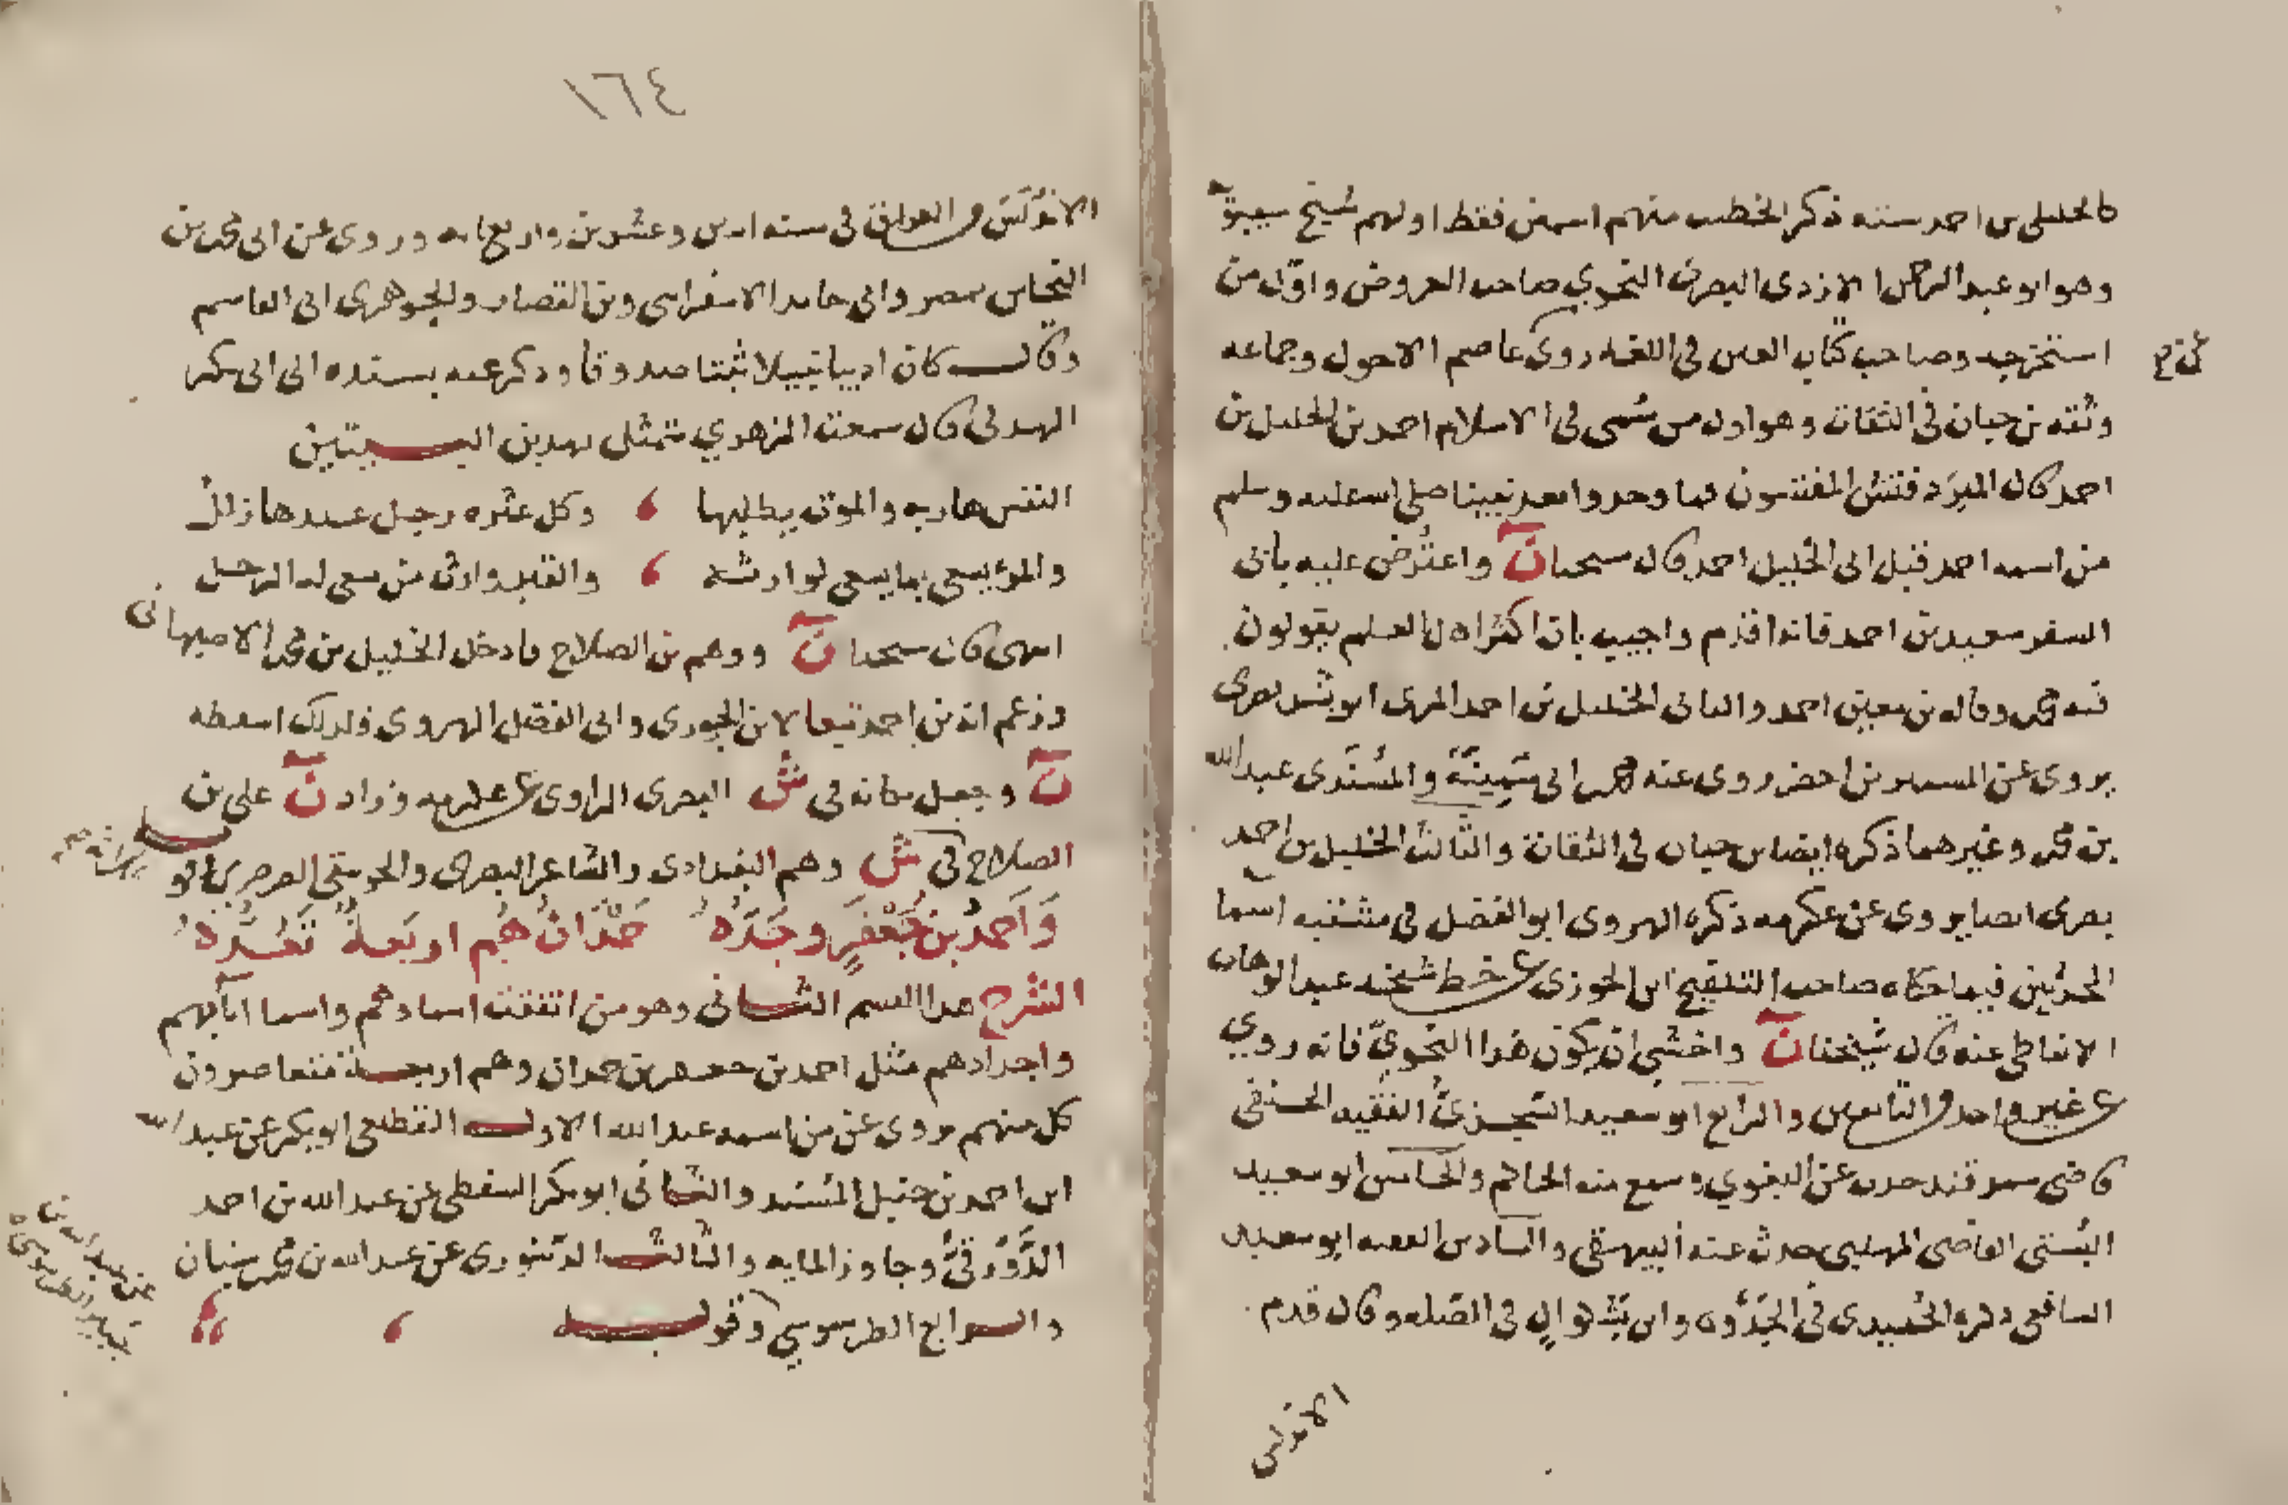 كالخليل بن احمد ستة ذكر الخطيب منهم اسمين فقط اولهم شيخ سيبويه
وهو ابو عبد الرحمن الازدي البصري النحوي صاحب العروض واول من
استخرجه وصاحب كتاب العين في اللغة روى عاصم الاحول وجماعه
عن صح
وثقه بن حبان في الثقات وهو اول من سمي في الاسلام احمد بن الخليل بن
احمد قال المبرد فتش المفتشون فما وجدوا بعد نبينا صلى الله عليه وسلم
من اسمه احمد قبل ابي الخليل احمد قال شيخنا ن واعترض عليه بابي
السفر سعيد بن احمد فانه اقدم واجيب بان اكثر اهل العلم يقولون
فيه محمد وقاله بن معين احمد والثاني الخليل بن احمد المزني ابو بشر بصرى
يروى عن المستنير بن اخضر روى عنه محمد ابي سمينة والمسندى عبد الله
بن محمد وغيرهما ذكره ايضا بن حبان في الثقات والثالث الخليل بن احمد
بصرى ايضا يروى عن عكرمه ذكره الهروى ابو الفضل في مشتبه اسما
المحدثين فيما حكاه صاحب التلقيح ابن الجوزى عن خط شيخه عبد الوهاب
الانماطي عنه قال شيخنا ن واخشى ان يكون هذا النحوي فانه روى
عن غير واحد من التابعين والرابع ابو سعيد السجزي الفقيه الحنفي
قاضي سمرقند حدث عن البغوي وسمع منه الحاكم والخامس ابو سعيد
البستي القاضي المهلبي حدث عنه البيهقي والسادس الفقيه ابو سعيد
الشافعي ذكره الحميدى في الجذوة وابن بشكوال في الصله وقال قدم
الاندلس
١٦٤
الاندلس من العراق في سنه اثنين وعشرين واربعمايه وروى عن ابي محمد بن
النحاس بمصر وابي حامد الاسفراىني وبن القصار والجوهرى ابي القاسم
وقال كان اديبا نبيلا ثبتا صدوقا وذكر عنه بسنده الى ابي بكر
الهذلي قال سمعت الزهري يتمثل بهذين البيتين
النفس هاربه والموت يطلبها ، وكل عثره رجل عندها زلل
والمرؤ يسعى بما يسعى لوارثه ، والقبر وارث من يسعى له الرجل
انتهى قال شيخنا ن ووهم بن الصلاح فادخل الخليل بن محمد الاصبهاني
وزعم انه بن احمد تبعا لابن الجوزى وابي الفضل الهروى فلذلك اسقطه
ن وجعل مكانه في ش البصرى الراوى عن عكرمه وزاد ن على بن
الصلاح في ش وهم البغدادى والشاعر البصرى والجوسقي الصرصرى ابو
وَاَحمَدُ بن جَعْفَرٍ وَجَدُّهُ حَمْدَانُ هُم اربَعةٌ تَعُدُّه
الشرح هذا القسم الثاني وهو من اتفقت اسماوهم واسما ابآبهم
واجدادهم مثل احمد بن جعفر بن حمدان وهم اربعة متعاصرون
كل منهم يروى عن من اسمه عبد الله الاول القطيعي ابو بكر عن عبد الله
ابن احمد بن حنبل المسند والثاني ابو بكر السقطي عن عبد الله بن احمد
الدَّورَقيُّ وجاوز المايه والثالث الدينورى عن عبد الله بن محمد سنان
والرابع الطرسوسي وقوله
عن عبد الله بن
جابر الطرسوسي